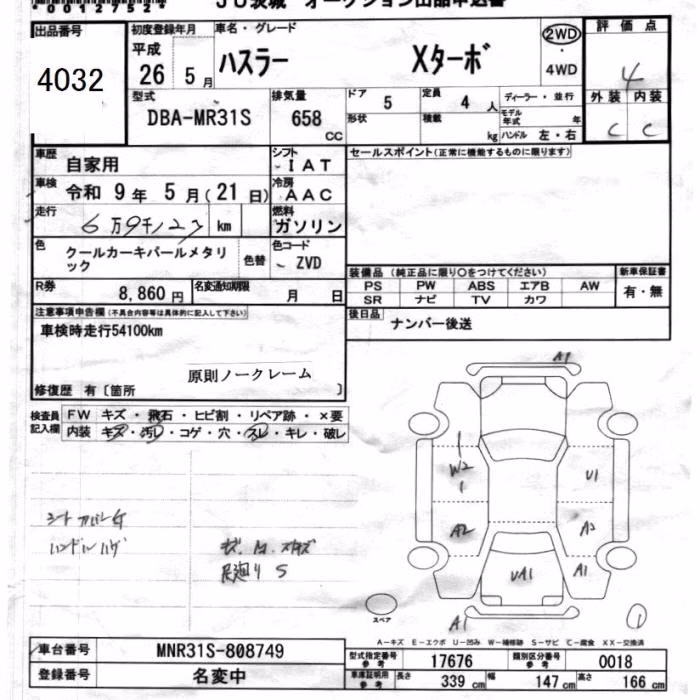 00127526
JU茨城 オークション出品申込書
出品番号
4032
初度登録年月
平成
26 5月
車名・グレード
ハスラー Xターボ
2WD
・
4WD
評価点
4
外装 内装
C C
型式
DBA-MR31S
排気量
658
CC
ドア
5
定員
4人
形状
積載
kg
ディーラー・並行
モデル年式 年
ハンドル 左・右
車歴
自家用
シフト
IAT
セールスポイント(正常に機能するものに限ります)
車検
令和 9年 5月(21日)
冷房
AAC
走行
6万9千ノ23 km
燃料
ガソリン
色
クールカーキパールメタリ
ック
色替
色コード
ZVD
装備品 (純正品に限り○をつけてください)
PS PW ABS エアB AW
SR ナビ TV カワ
新車保証書
有・無
R券
8,860円
名変通知期限
月 日
後日品
ナンバー後送
注意事項申告欄(不具合内容等は具体的に記入して下さい)
車検時走行54100km
原則ノークレーム
修復歴 有〔箇所 〕
検査員
記入欄
FW キズ・飛石・ヒビ割・リペア跡・×要
内装 キズ・汚レ・コゲ・穴・スレ・キレ・破レ
A1
W2
U1
A2
A2
UA1
A1
A1
シートカバー付
ハンドルハゲ
足廻りS
スペア
1
A-キズ E-エクボ U-凹み W-補修跡 S-サビ C-腐食 XX-交換済
車台番号
MNR31S-808749
登録番号
名変中
型式指定番号
参考
17676
類別区分番号
参考
0018
車庫証明用
参考
長さ 339cm 幅 147cm 高さ 166cm